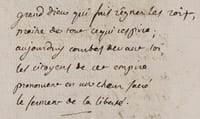 grand dieu qui fais régner les rois,
maitre de tout ce qui respire;
aujourdhuy courbés devant toi,
les citoyens de cet empire
prononcent en un chœur sacré
le serment de la liberté.